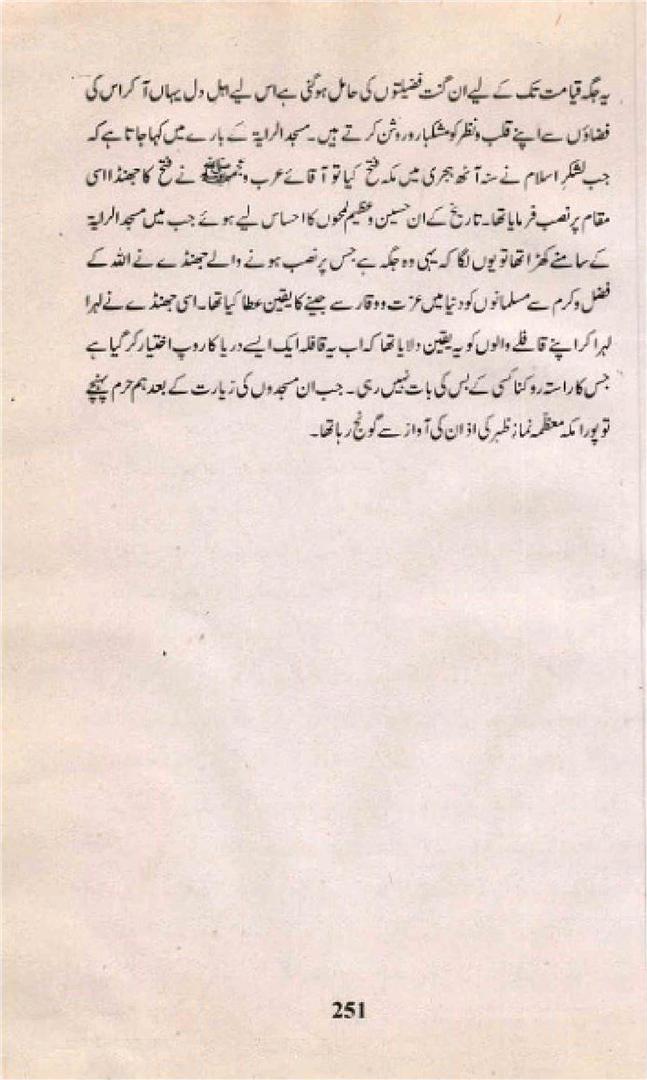 یہ جگہ قیامت تک کے لیے ان گنت فضیلتوں کی حامل ہو گئی ہے اس لیے اہل دل یہاں آ کر اس کی
فضاؤں سے اپنے قلب و نظر کو مشکبار و روشن کرتے ہیں۔ مسجد الرایۃ کے بارے میں کہا جاتا ہے کہ
جب لشکرِ اسلام نے سنہ آٹھ ہجری میں مکہ فتح کیا تو آقائے عرب و عجم ﷺ نے فتح کا جھنڈا اسی
مقام پر نصب فرمایا تھا۔ تاریخ کے ان حسین و عظیم لمحوں کا احساس لیے ہوئے جب میں مسجد الرایۃ
کے سامنے کھڑا تھا تو یوں لگا کہ یہی وہ جگہ ہے جس پر نصب ہونے والے جھنڈے نے اللہ کے
فضل و کرم سے مسلمانوں کو دنیا میں عزت و وقار سے جینے کا یقین عطا کیا تھا۔ اسی جھنڈے نے لہرا
لہرا کر اپنے قافلے والوں کو یہ یقین دلایا تھا کہ اب یہ قافلہ ایک ایسے دریا کا روپ اختیار کر گیا ہے
جس کا راستہ روکنا کسی کے بس کی بات نہیں رہی۔ جب ان مسجدوں کی زیارت کے بعد ہم حرم پہنچے
تو پورا مکہ معظّمہ نمازِ ظہر کی اذان کی آواز سے گونج رہا تھا۔
251